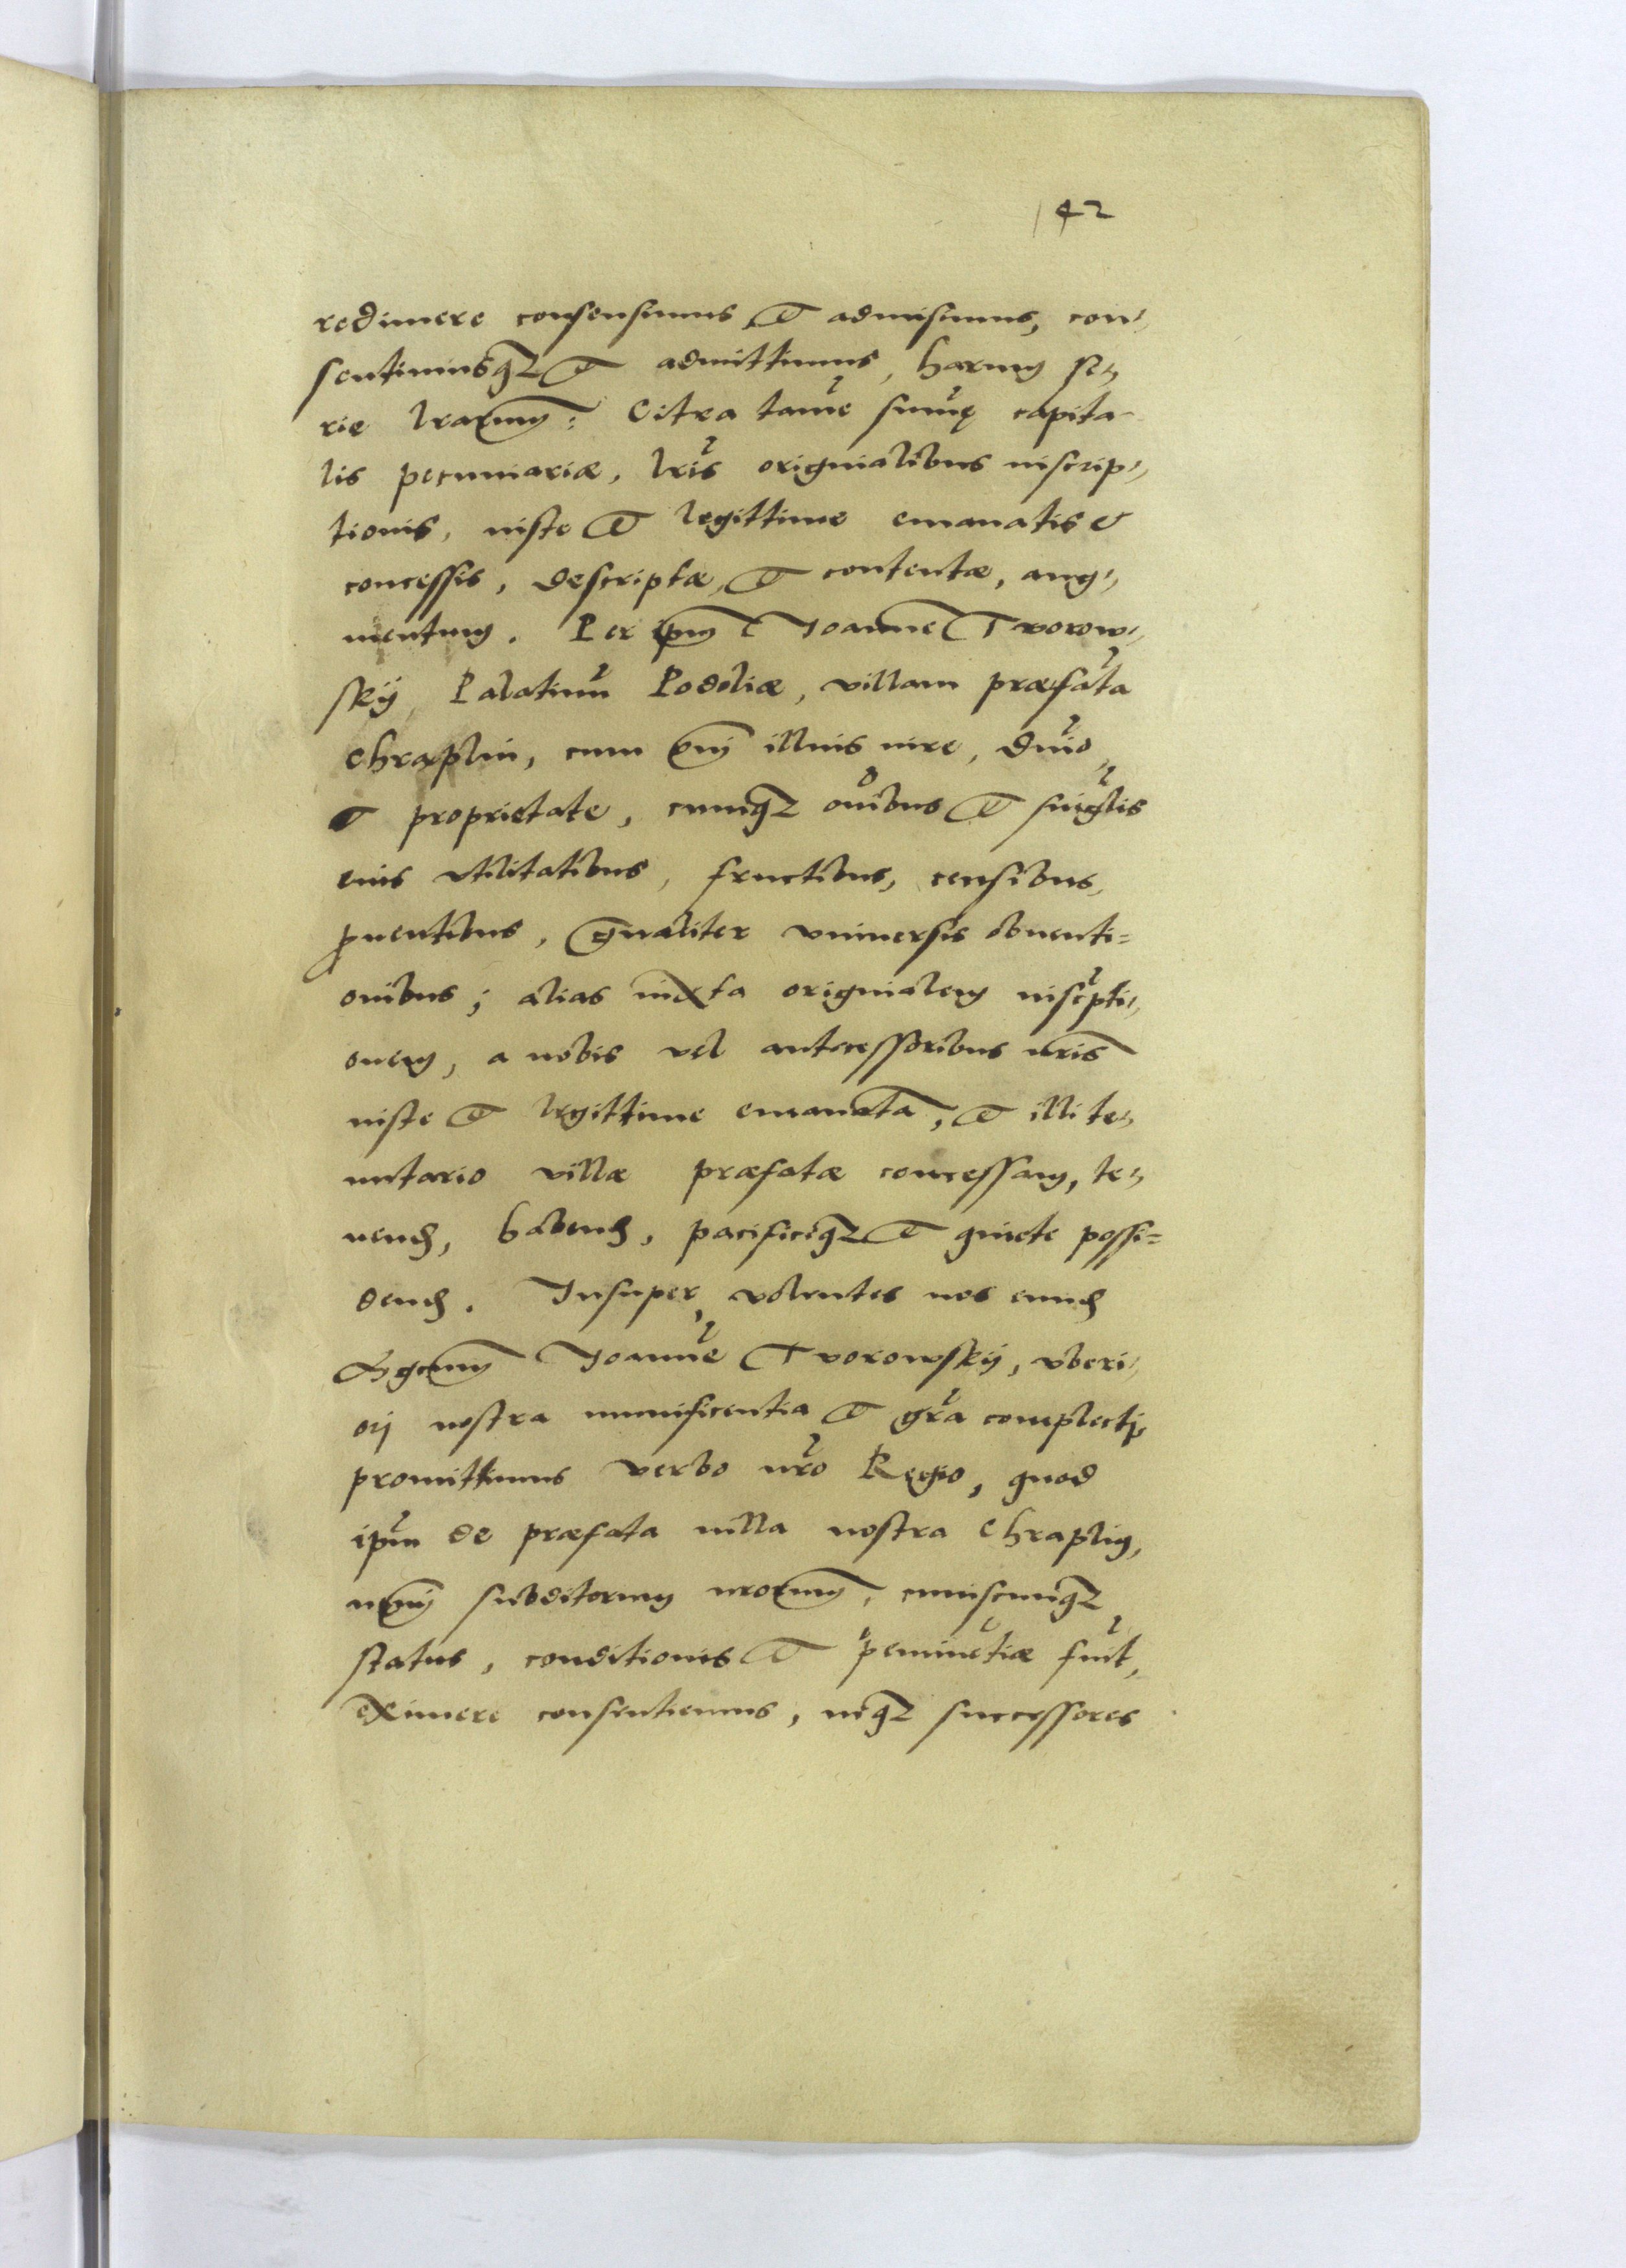 142
redimere consensimus et admisimus, con-
sentimusq; et admittimus, harum se-
rie lrarum: Citra tamē sūmę capita-
lis pecuniariæ, lrīs originalibus inscrip-
tionis, iuste et legittime emanatis et
concessis, descriptæ, et contentæ, aug-
mentum. Per ipm Joanne Tvorow-
skÿ, Palatinū Podoliæ, villam præfatā
Chraplin, cum omi illius iure, dnīo,
et proprietate, cumq; oībus et singlīs
eius vtilitatibus, fructibus, censibus,
ꝓuentibus, gnaliter vniuersis obuenti=
onibus; alias iuxta originalem inscrpti-
onem, a nobis vel antecessoribus nris
iuste et legittime emanata, et illi te-
nutario villæ præfatæ concessam, te-
nend, habend, pacificeq; et quiete possi=
dend. Insuper, volentes nos eund
Mgcum Joannē Tvorowskÿ, vberi-
orj nostra munificentia et grā complectj,
promittimus verbo nrō Regio, quod
ipm̄ de præfata uilla nostra Chraplin,
nemj subditorum nrorum, cuiuscunq;
status, conditionis et p̄eminētiæ fuīt,
eximere consentiemus, neq; successores